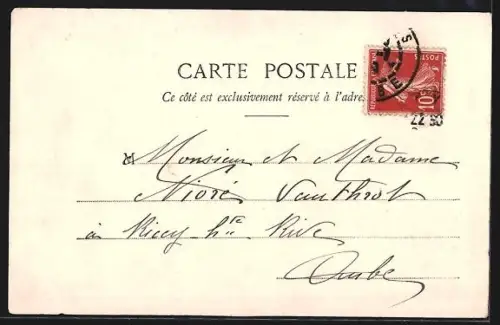 CARTE POSTALE
Ce côté est exclusivement réservé à l'adre
RÉPUBLIQUE
POSTES
10c
Monsieur et Madame
Nioré Vauthrot
à Ricey hte Rive
Aube